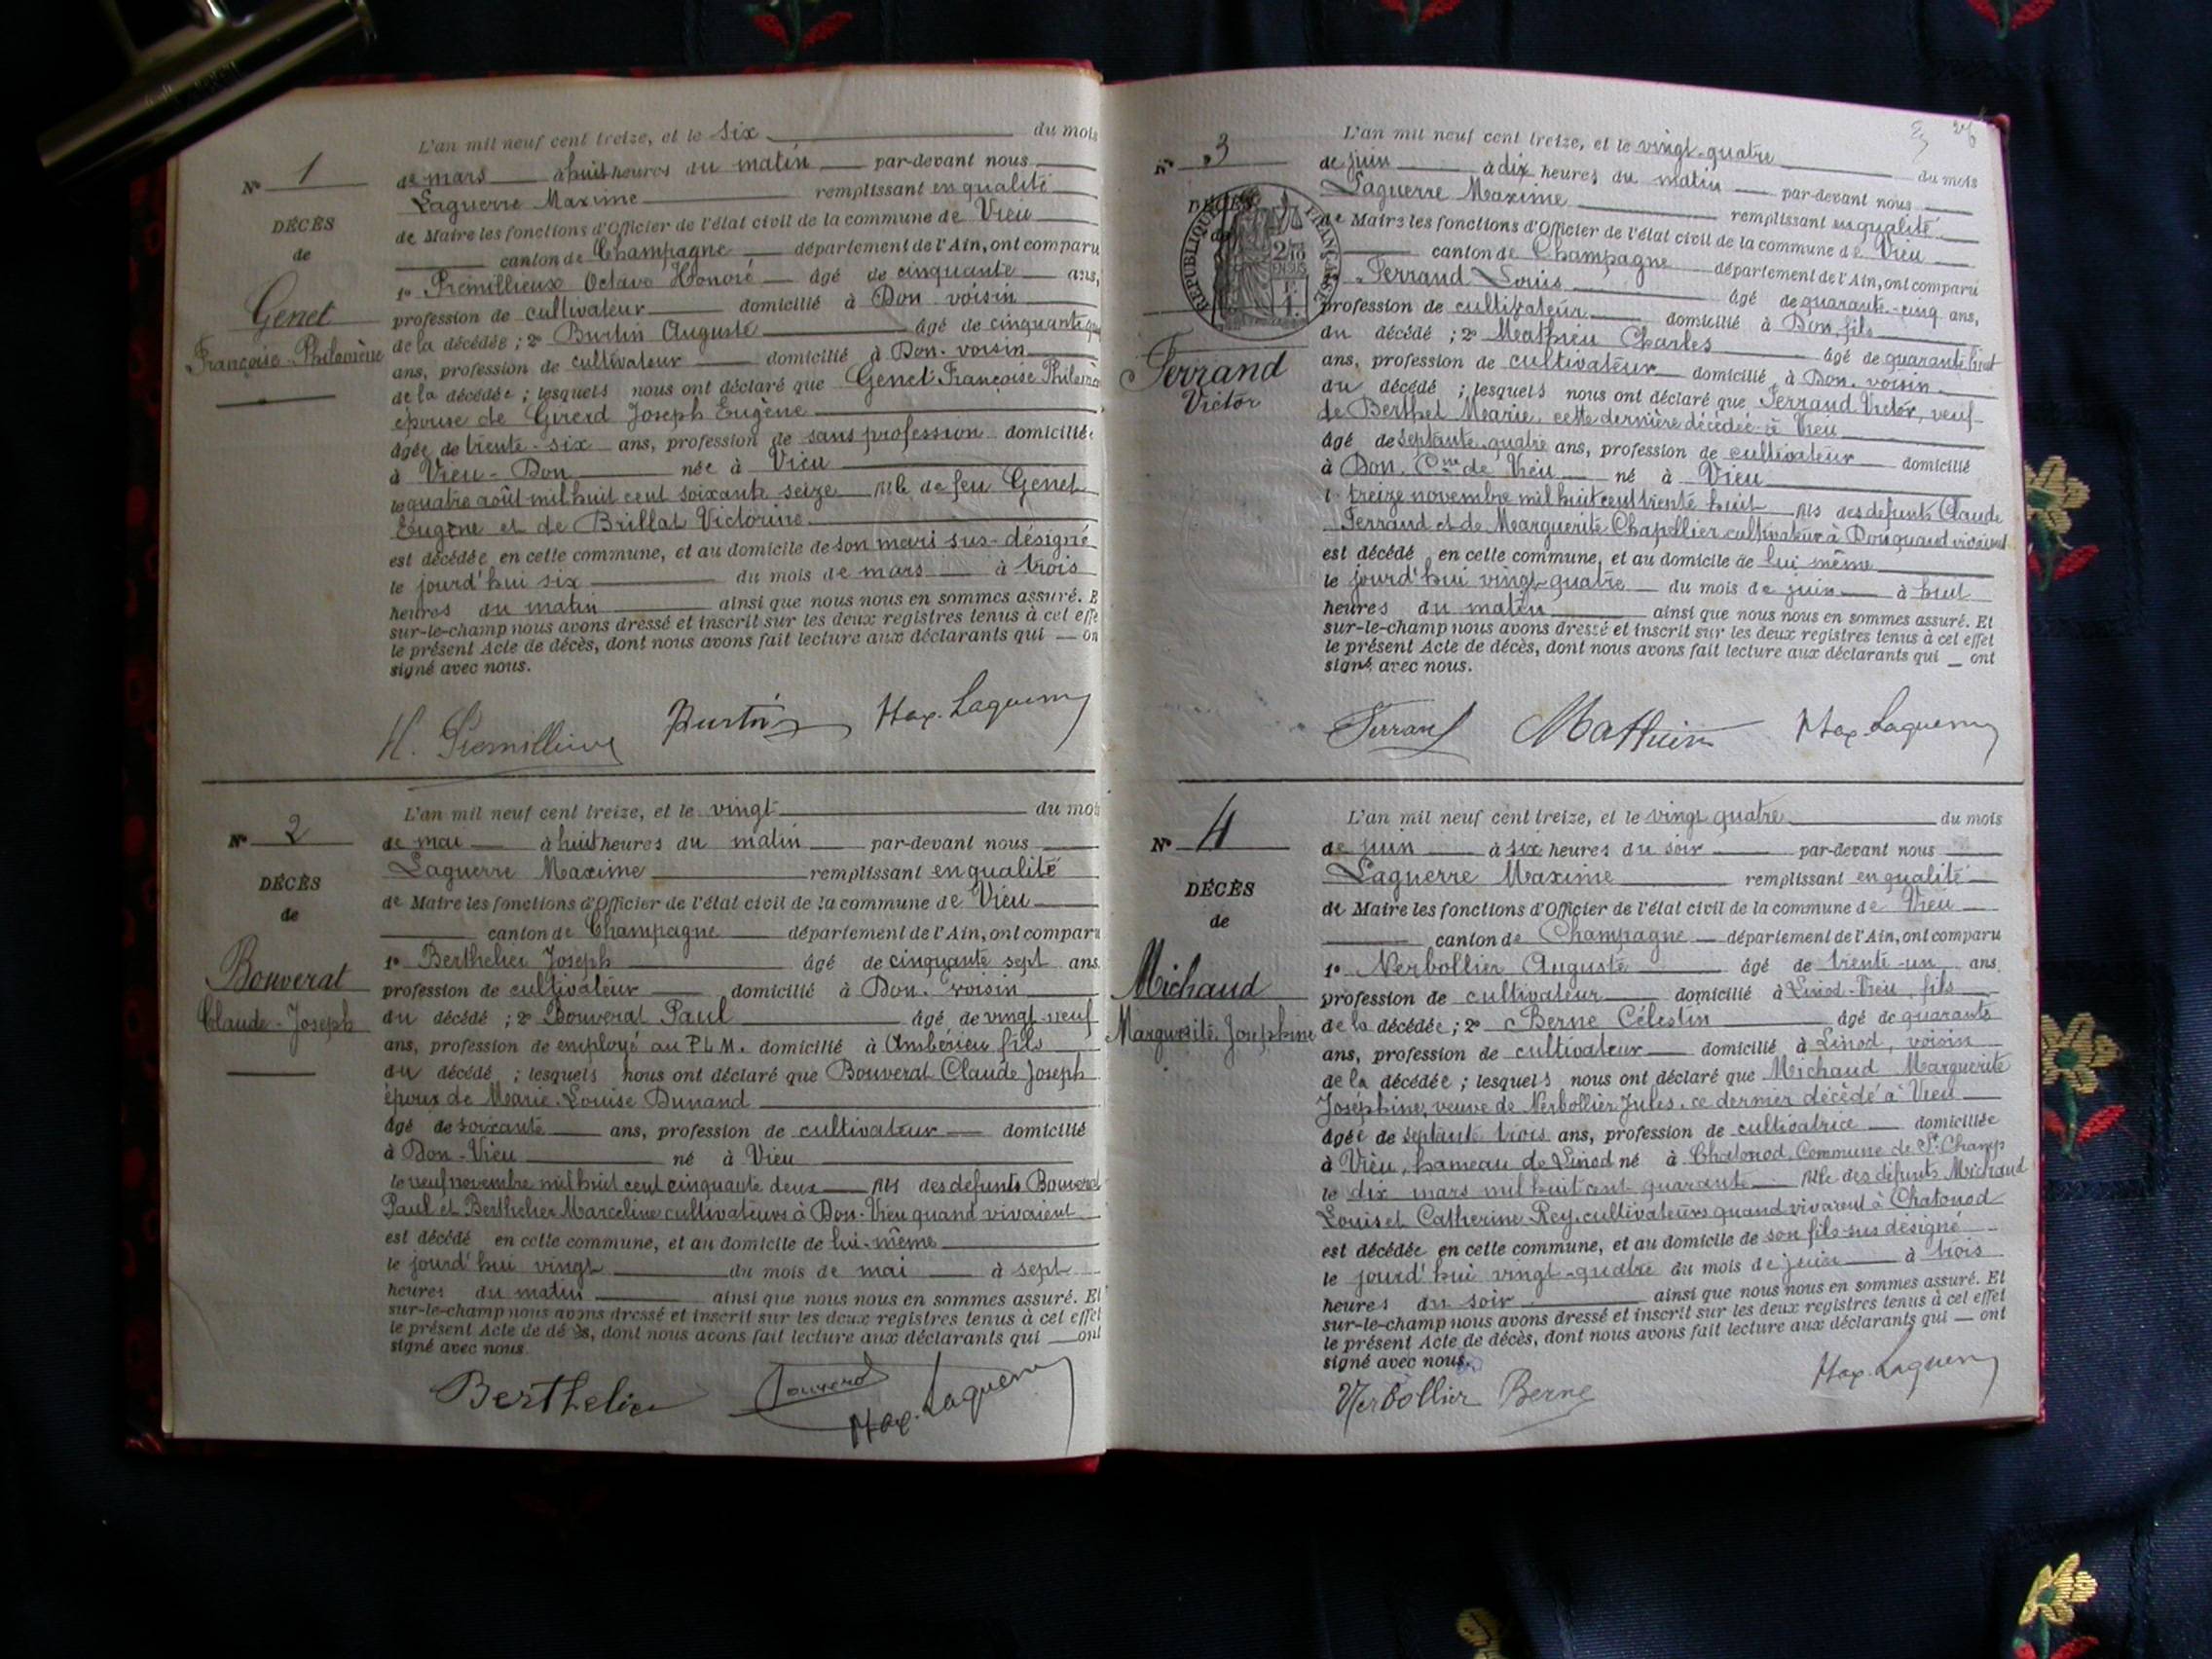 N° 1
DÉCÈS
de
Genet
Françoise-Philomène
L'an mil neuf cent treize, et le six du mois
de mars à huit heures du matin par-devant nous
Laguerre Maxime remplissant en qualité
de Maire les fonctions d'Officier de l'état civil de la commune de Vieu
canton de Champagne département de l'Ain, ont comparu
1° Prémillieux Octave Honoré âgé de cinquante ans,
profession de cultivateur domicilié à Don voisin
de la décédée ; 2° Burtin Auguste âgé de cinquante
ans, profession de cultivateur domicilié à Don. voisin
de la décédée ; lesquels nous ont déclaré que Genet Françoise Philomè
épouse de Girerd Joseph Eugène
âgée de trente-six ans, profession de sans profession domiciliée
à Vieu-Don née à Vieu
le quatre août mil huit cent soixante seize fille de feu Genet
Eugène et de Brillat Victorine
est décédée en cette commune, et au domicile de son mari sus-désigné
le jourd'hui six du mois de mars à trois
heures du matin ainsi que nous nous en sommes assuré. E
sur-le-champ nous avons dressé et inscrit sur les deux registres tenus à cet effe
le présent Acte de décès, dont nous avons fait lecture aux déclarants qui on
signé avec nous.
H. Premillieux Burtin Max. Laguerre
N° 2
DÉCÈS
de
Bouverat
Claude-Joseph
L'an mil neuf cent treize, et le vingt du moi
de mai à huit heures du matin par-devant nous
Laguerre Maxime remplissant en qualité
de Maire les fonctions d'Officier de l'état civil de la commune de Vieu
canton de Champagne département de l'Ain, ont comparu
1° Berthelier Joseph âgé de cinquante sept ans
profession de cultivateur domicilié à Don. voisin
du décédé ; 2° Bouverat Paul âgé de vingt-neuf
ans, profession de employé au P.L.M. domicilié à Ambérieu fils
du décédé ; lesquels nous ont déclaré que Bouverat Claude Joseph
époux de Marie-Louise Dunand
âgé de soixante ans, profession de cultivateur domicilié
à Don-Vieu né à Vieu
le neuf novembre mil huit cent cinquante deux fils des defunts Bouverat
Paul et Berthelier Marceline cultivateurs à Don-Vieu quand vivaient
est décédé en cette commune, et au domicile de lui-même
le jourd'hui vingt du mois de mai à sept
heures du matin ainsi que nous nous en sommes assuré. Et
sur-le-champ nous avons dressé et inscrit sur les deux registres tenus à cet effet
le présent Acte de décès, dont nous avons fait lecture aux déclarants qui ont
signé avec nous.
Berthelier Bouverat Max. Laguerre
N° 3
DÉCÈS
de
RÉPUBLIQUE FRANÇAISE
Ferrand
Victor
L'an mil neuf cent treize, et le vingt-quatre du mois
de juin à dix heures du matin par-devant nous
Laguerre Maxime remplissant en qualité
de Maire les fonctions d'Officier de l'état civil de la commune de Vieu
canton de Champagne département de l'Ain, ont comparu
Ferrand Louis âgé de quarante-cinq ans,
profession de cultivateur domicilié à Don, fils
du décédé ; 2° Mathieu Charles âgé de quarante huit
ans, profession de cultivateur domicilié à Don. voisin
du décédé ; lesquels nous ont déclaré que Ferrand Victor, veuf
de Berthet Marie, cette dernière décédée à Vieu
âgé de septante-quatre ans, profession de cultivateur domicilié
à Don. Cne de Vieu né à Vieu
l treize novembre mil huit cent trente huit fils des defunts Claude
Ferrand et de Marguerite Chapellier cultivateur à Don quand vivaient
est décédé en cette commune, et au domicile de lui même
le jourd'hui vingt-quatre du mois de juin à huit
heures du matin ainsi que nous nous en sommes assuré. Et
sur-le-champ nous avons dressé et inscrit sur les deux registres tenus à cet effet
le présent Acte de décès, dont nous avons fait lecture aux déclarants qui ont
signé avec nous.
Ferrand Mathieu Max. Laguerre
N° 4
DÉCÈS
de
Michaud
Marguerite Josephine
L'an mil neuf cent treize, et le vingt quatre du mois
de juin à six heures du soir par-devant nous
Laguerre Maxime remplissant en qualité
de Maire les fonctions d'Officier de l'état civil de la commune de Vieu
canton de Champagne département de l'Ain, ont comparu
1° Nerbollier Auguste âgé de trente-un ans
profession de cultivateur domicilié à Linod-Vieu, fils
de la décédée ; 2° Berne Célestin âgé de quarante
ans, profession de cultivateur domicilié à Linod, voisin
de la décédée ; lesquels nous ont déclaré que Michaud Marguerite
Joséphine, veuve de Nerbollier Jules, ce dernier décédé à Vieu
âgée de septante trois ans, profession de cultivatrice domiciliée
à Vieu, hameau de Linod né à Chatonod, Commune de St Champ
le dix mars mil huit cent quarante fille des défunts Michaud
Louis et Catherine Rey, cultivateurs quand vivaient à Chatonod
est décédée en cette commune, et au domicile de son fils sus désigné
le jourd'hui vingt-quatre du mois de juin à trois
heures du soir ainsi que nous nous en sommes assuré. Et
sur-le-champ nous avons dressé et inscrit sur les deux registres tenus à cet effet
le présent Acte de décès, dont nous avons fait lecture aux déclarants qui ont
signé avec nous.
Nerbollier Berne Max. Laguerre